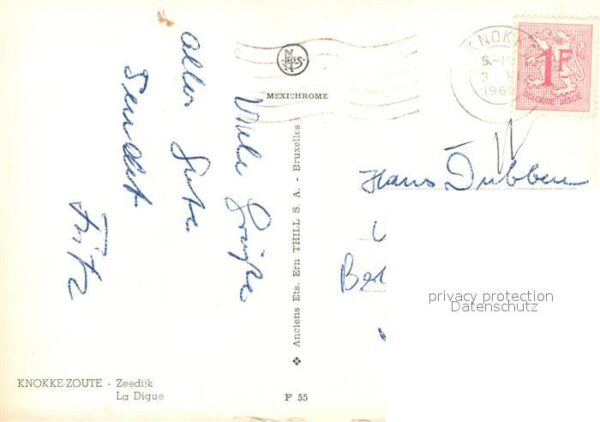 Viele Grüße
Alles Gute
sendet
Fritz
NELS
MEXICHROME
Anciens Ets. Ern THILL S. A. - Bruxelles
KNOKKE
196
1F
BELGIQUE BELGIE
Hans Dubben
privacy protection
Datenschutz
KNOKKE-ZOUTE - Zeedijk
La Digue
F 55